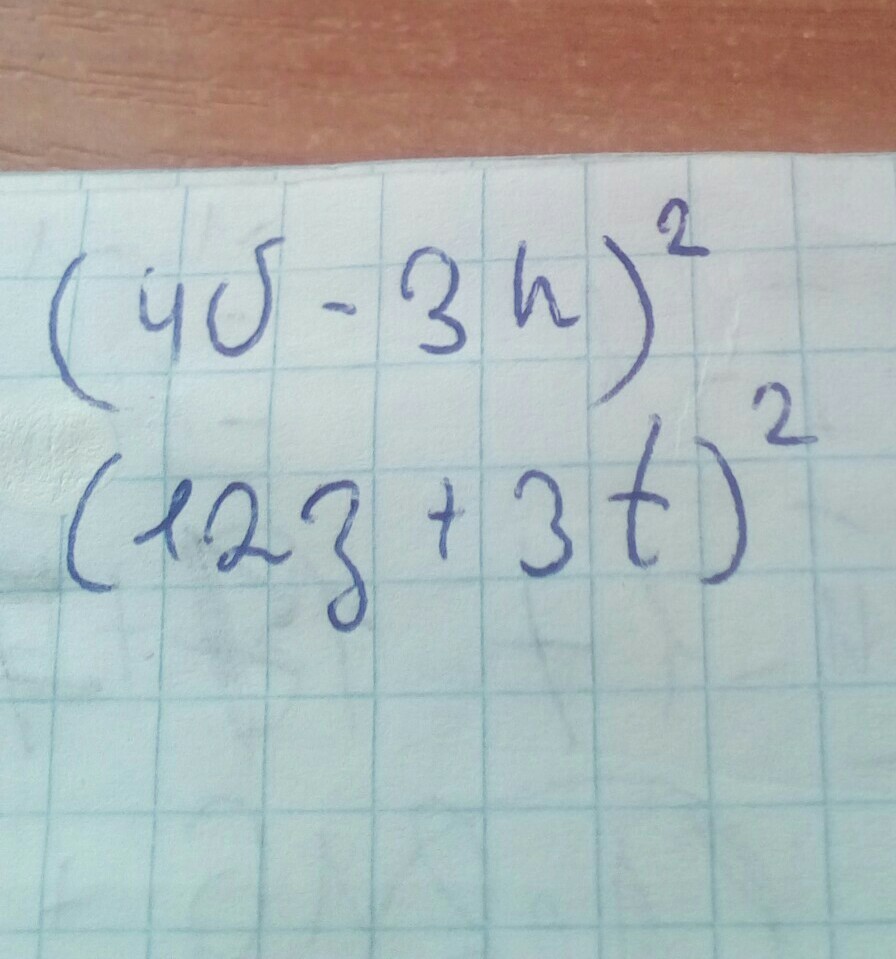 (4v - 3h)²
(12z + 3t)²